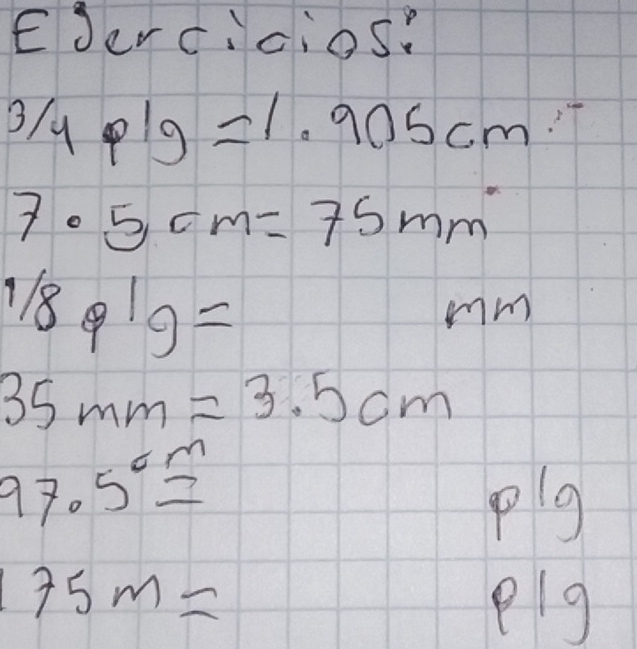 EJercicios:
3/4 plg = 1.905 cm
7.5 cm = 75 mm
1/8 plg = mm
35 mm = 3.5 cm
97.5 cm = plg
175 m = plg